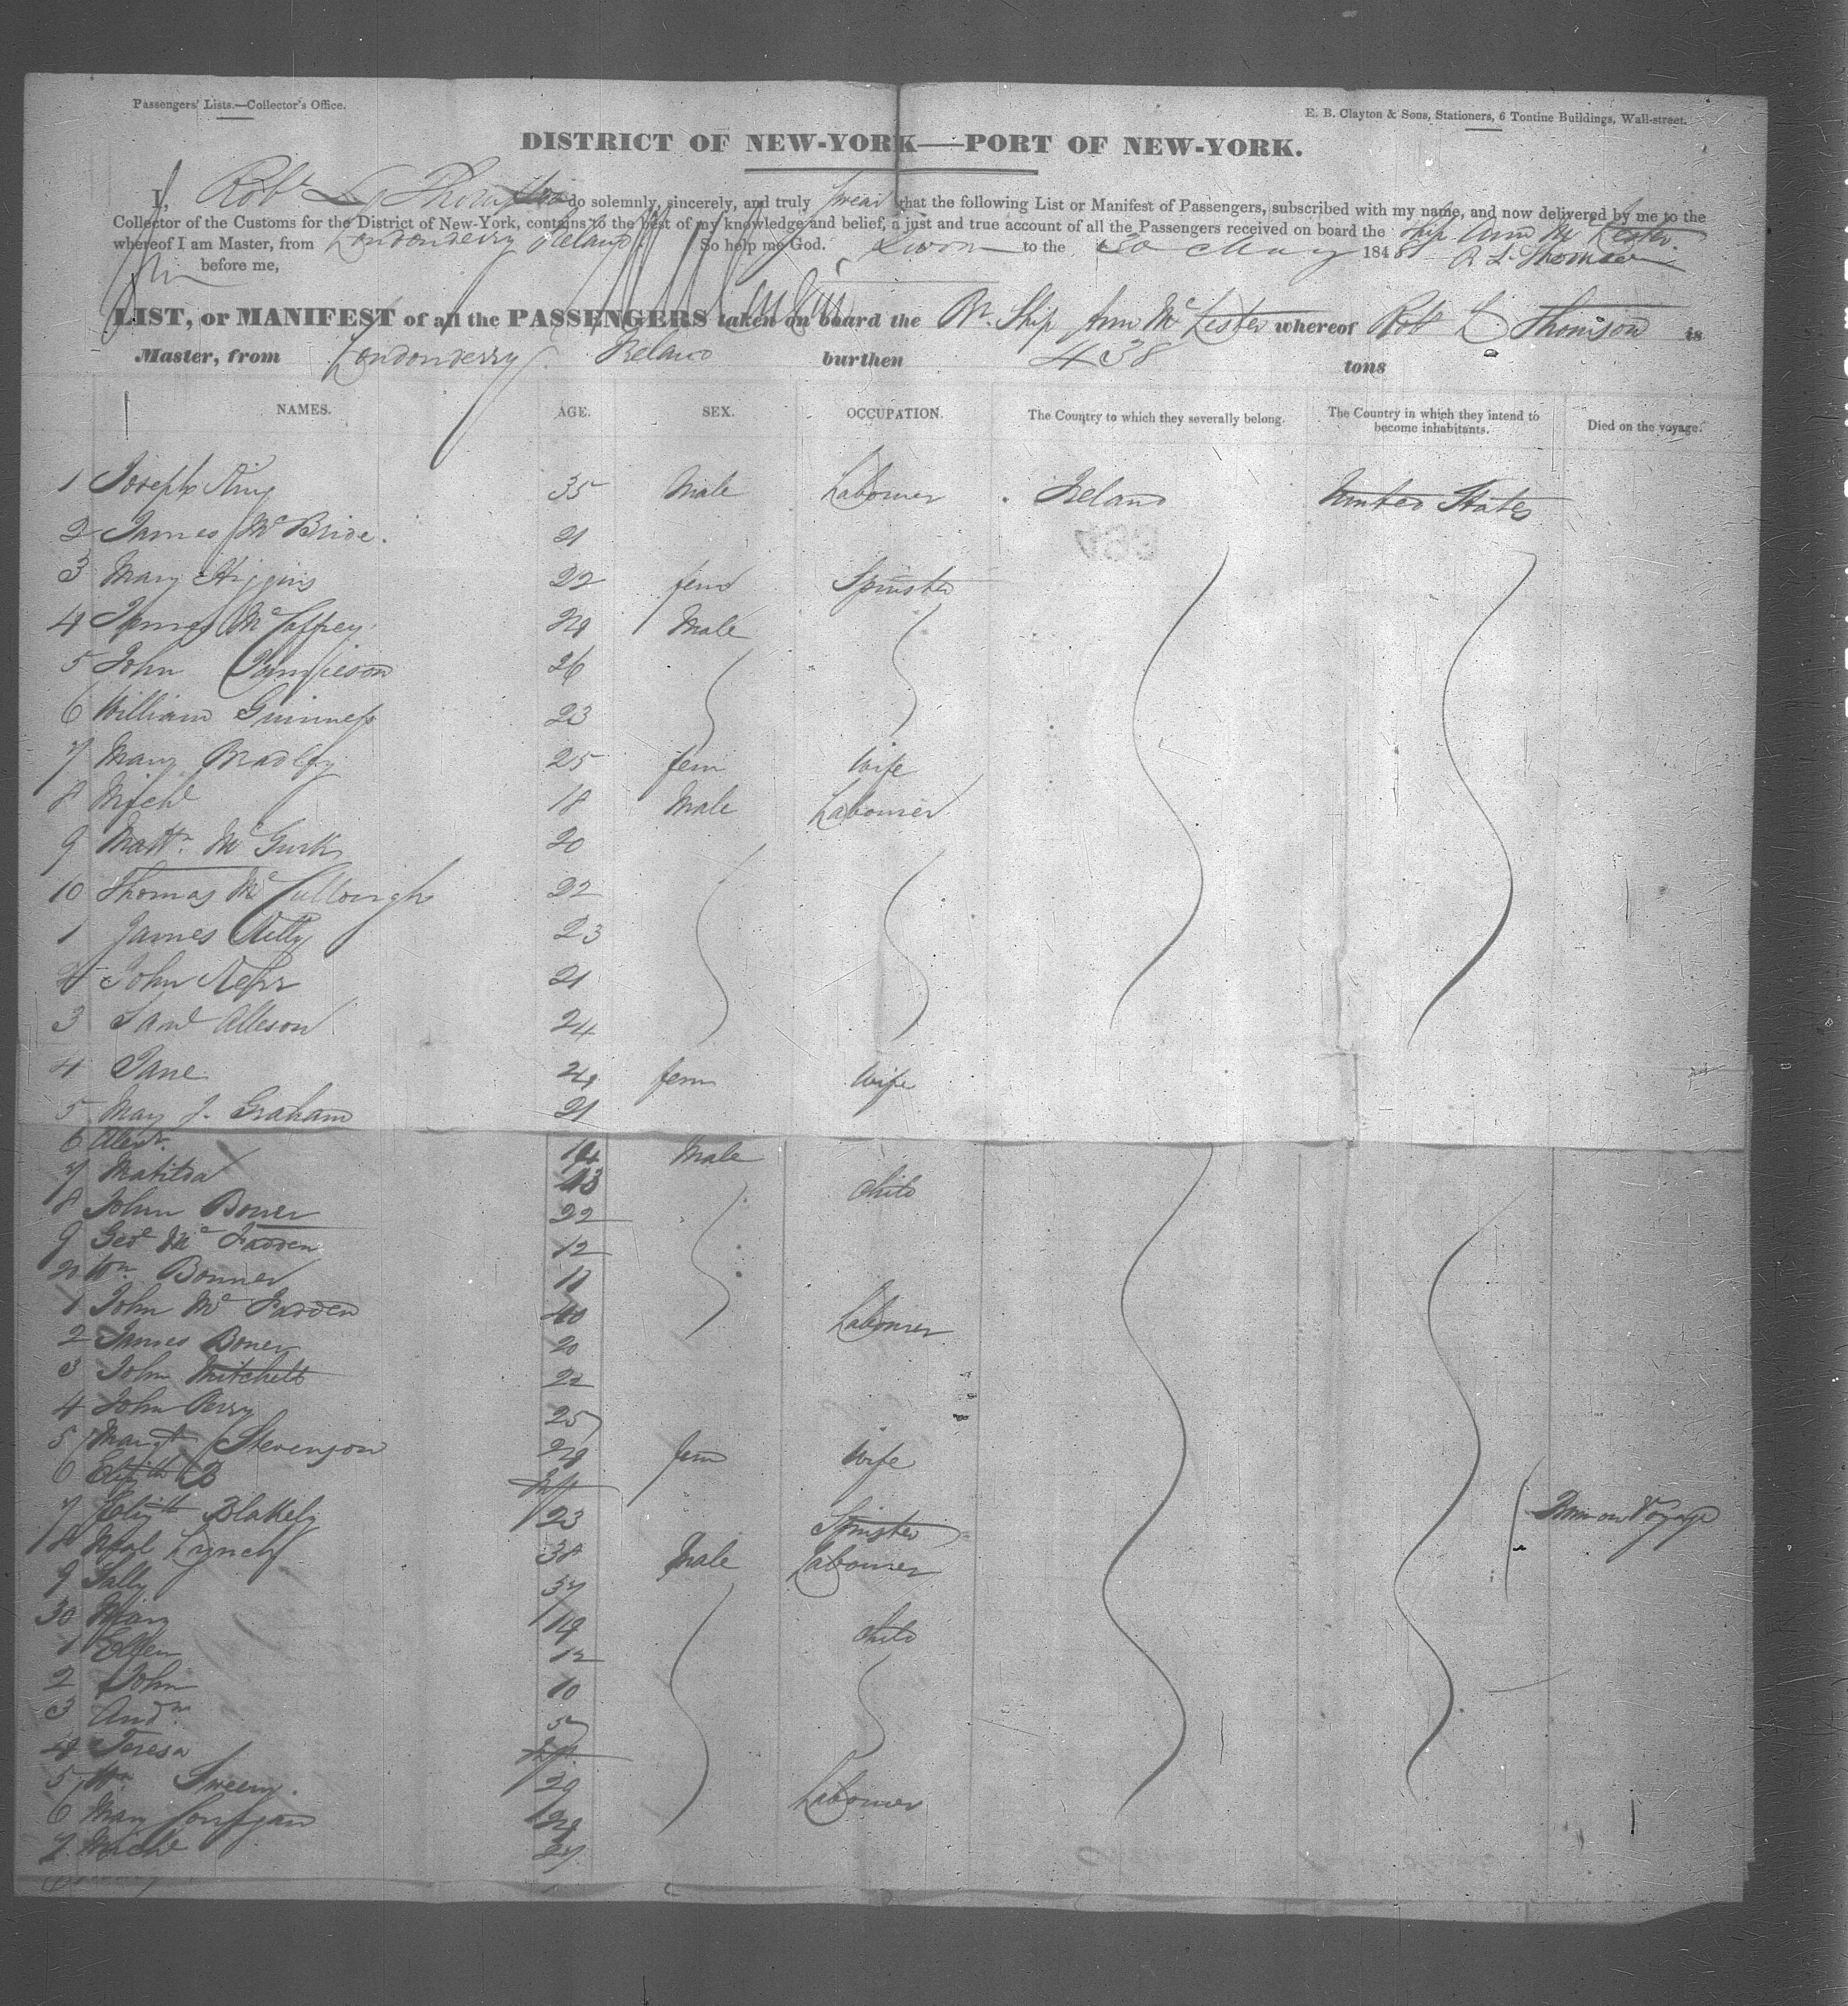 Passengers' Lists.—Collector's Office.
E. B. Clayton & Sons, Stationers, 6 Tontine Buildings, Wall-street.
DISTRICT OF NEW-YORK—PORT OF NEW-YORK.
I, Robt L Thomson do solemnly, sincerely, and truly swear that the following List or Manifest of Passengers, subscribed with my name, and now delivered by me to the
Collector of the Customs for the District of New-York, contains to the best of my knowledge and belief, a just and true account of all the Passengers received on board the Ship Ann Mc Lester
whereof I am Master, from Londonderry Ireland. So help me God. Sworn to the 30 May 1848 R L Thomson
before me,
LIST, or MANIFEST of all the PASSENGERS taken on board the Br. Ship Ann Mc Lester whereof Robt L. Thomson is
Master, from Londonderry. Ireland burthen 438 tons
NAMES. AGE. SEX. OCCUPATION. The Country to which they severally belong. The Country in which they intend to become inhabitants. Died on the voyage.
1 Joseph King 35 Male Labourer Ireland United States
2 James Mc Bride. 21
3 Mary Higgins 22 fem Spinster
4 James Mc Caffrey 24 Male
5 John Jamieson 26
6 William Guinness 23
7 Mary Bradley 25 fem Wife
8 Michl 18 Male Labourer
9 Matt. Mc Gurk 20
10 Thomas Mc Cullough 22
1 James 23
2 John 21
3 Saml Alleson 24
4 Jane 24 fem Wife
5 Mary J. Graham 21
6 Alexr. 14 Male
7 Matilda 13 Child
8 John Boner 22
9 Geo Mc Fadden 12
20 Wm Bonner 11
1 John Mc Fadden 40 Labourer
2 James Boner 20
3 John Mitchell 22
4 John Perry 25
5 Margt Stevenson 24 fem Wife
6 Elizth B Inft
7 Elizth Blakely 23 Spinster
8 Neal Lynch 38 Male Labourer
9 Sally 37
30 Mary 14 Child
1 Ellen 12
2 John 10
3 Andw 5
4 Teresa Inft. Born on Voyage
5 Wm Sweeny. 29 Labourer
6 Mary 24
7 Michl 27